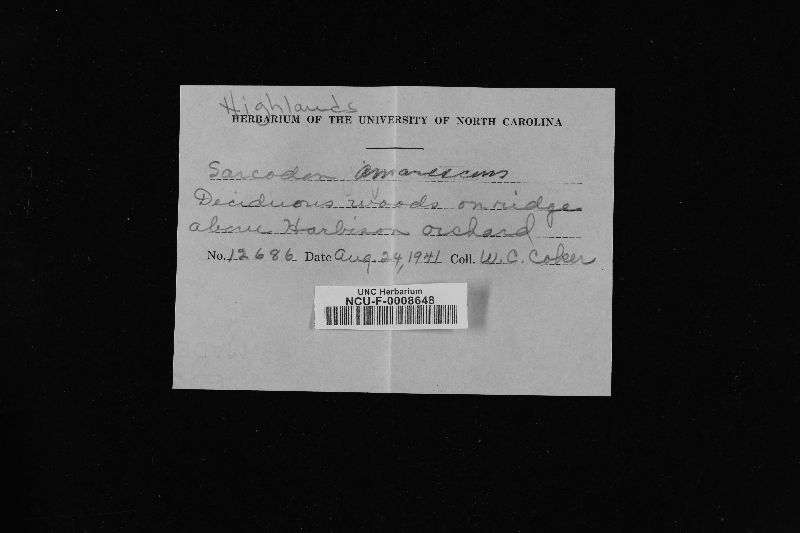 Highlands
HERBARIUM OF THE UNIVERSITY OF NORTH CAROLINA
Sarcodon amarescens
Deciduous woods on ridge
above Harbison orchard
No. 12686 Date Aug. 24, 1941 Coll. W. C. Coker
UNC Herbarium
NCU-F-0008648